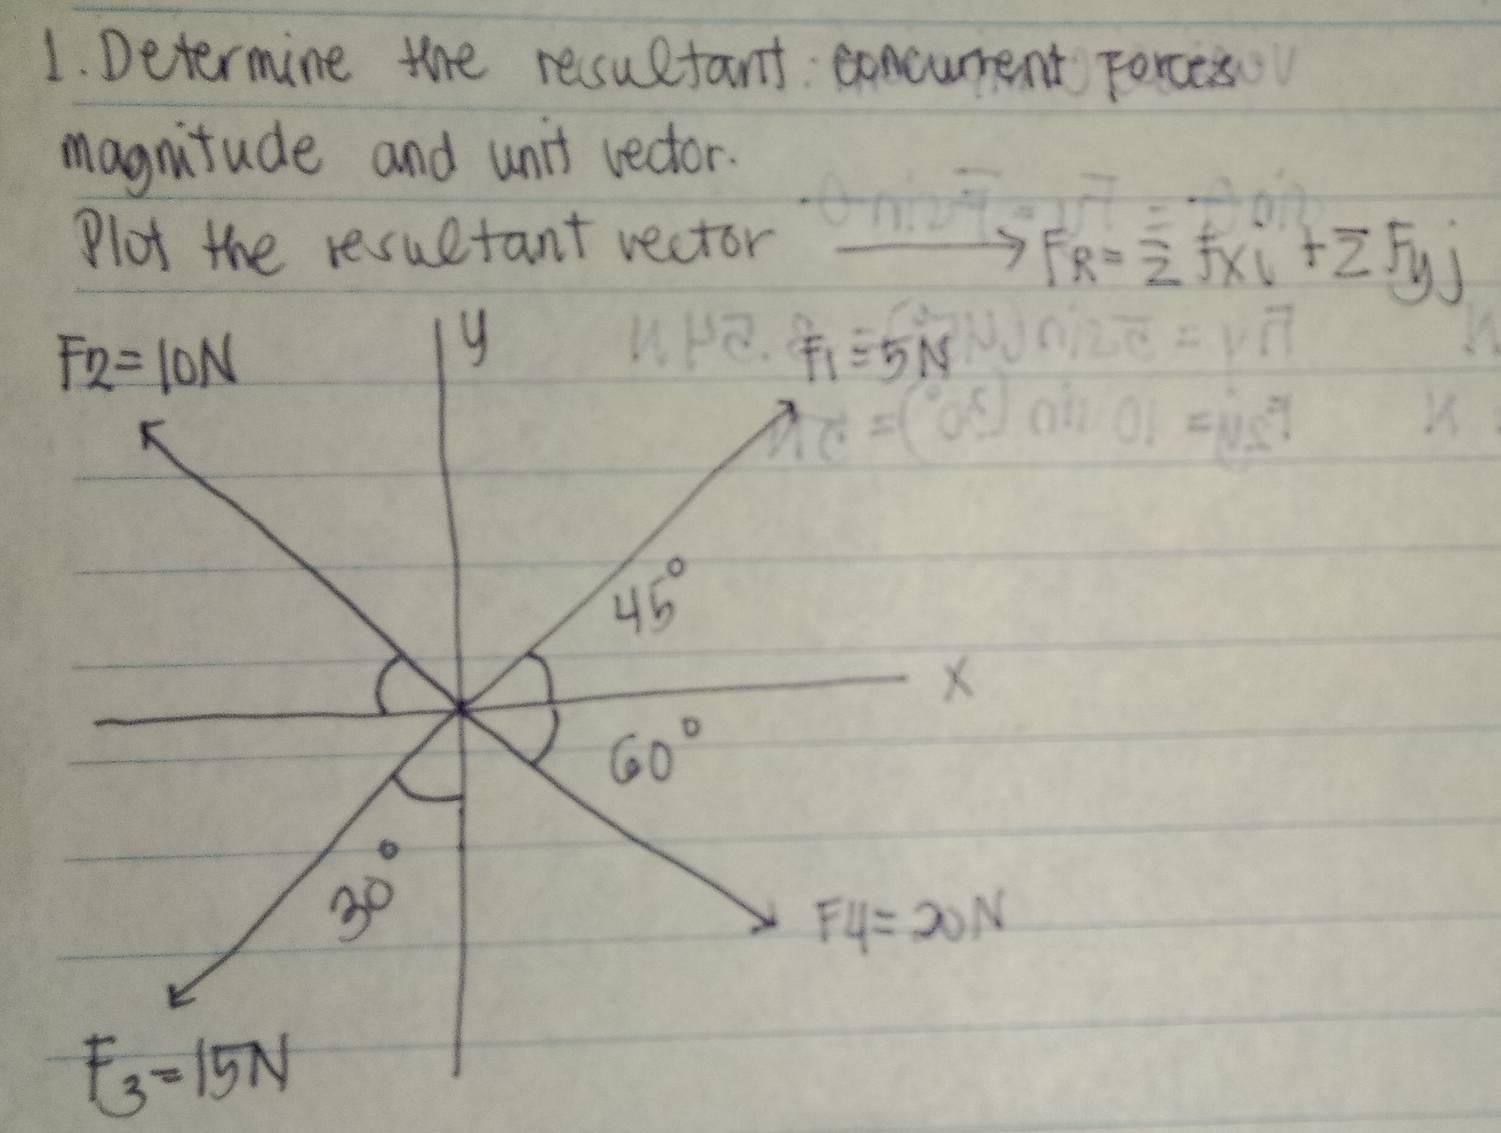 1. Determine the resultant: concurrent Forces
magnitude and unit vector.
Plot the resultant vector → FR = Σ Fxi + Σ Fyj
F2 = 10N
y
F1 = 5N
45°
x
60°
30°
F4 = 20N
F3 = 15N